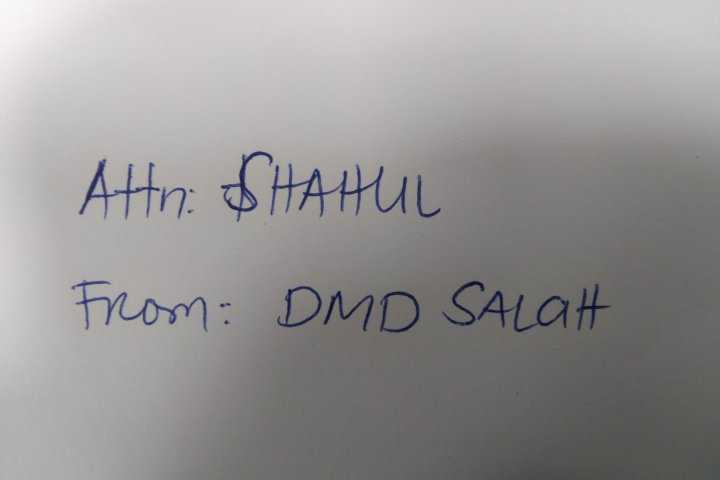 Attn: SHAHUL
From: DMD SALAH